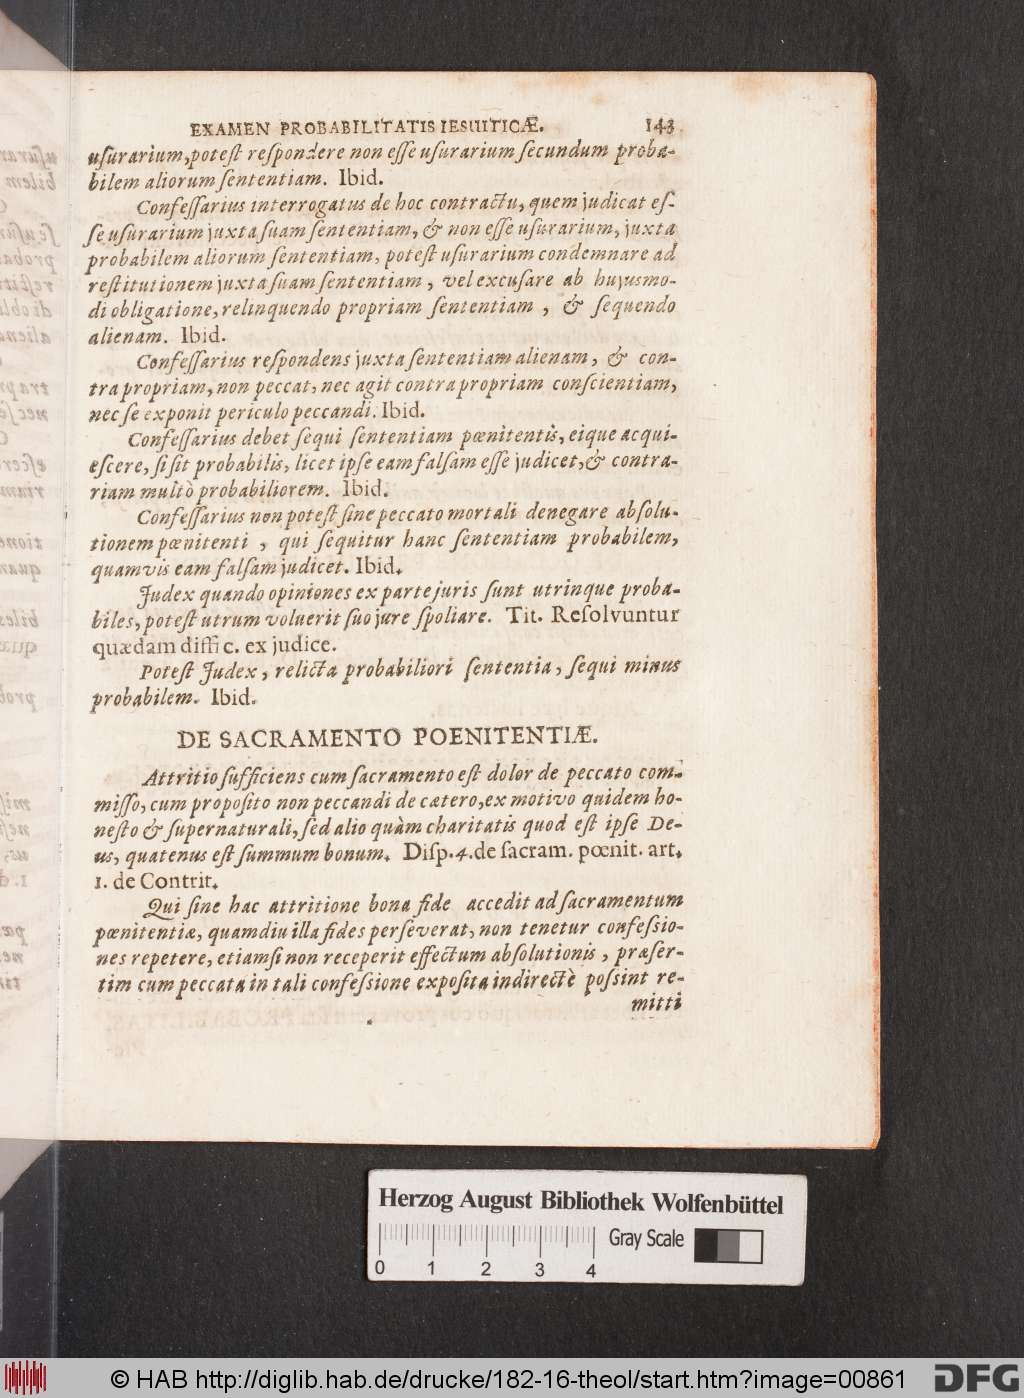 EXAMEN PROBABILITATIS IESUITICÆ. 143
uſurarium, poteſt reſpondere non eſſe uſurarium ſecundum proba-
bilem aliorum ſententiam. Ibid.
Confeſſarius interrogatus de hoc contractu, quem judicat eſ-
ſe uſurarium juxta ſuam ſententiam, & non eſſe uſurarium, juxta
probabilem aliorum ſententiam, poteſt uſurarium condemnare ad
reſtitutionem juxta ſuam ſententiam, vel excuſare ab hujusmo-
di obligatione, relinquendo propriam ſententiam, & ſequendo
alienam. Ibid.
Confeſſarius reſpondens juxta ſententiam alienam, & con-
tra propriam, non peccat, nec agit contra propriam conſcientiam,
nec ſe exponit periculo peccandi. Ibid.
Confeſſarius debet ſequi ſententiam pœnitentis, eique acqui-
eſcere, ſi ſit probabilis, licet ipſe eam falſam eſſe judicet, & contra-
riam multò probabiliorem. Ibid.
Confeſſarius non poteſt ſine peccato mortali denegare abſolu-
tionem pœnitenti, qui ſequitur hanc ſententiam probabilem,
quamvis eam falſam judicet. Ibid.
Judex quando opiniones ex parte juris ſunt utrinque proba-
biles, poteſt utrum voluerit ſuo jure ſpoliare. Tit. Reſolvuntur
quædam diffic. ex judice.
Poteſt Judex, relicta probabiliori ſententia, ſequi minus
probabilem. Ibid.
DE SACRAMENTO POENITENTIÆ.
Attritio ſufficiens cum ſacramento eſt dolor de peccato com-
miſſo, cum propoſito non peccandi de cætero, ex motivo quidem ho-
neſto & ſupernaturali, ſed alio quàm charitatis quod eſt ipſe De-
us, quatenus eſt ſummum bonum. Diſp. 4. de ſacram. pœnit. art.
1. de Contrit.
Qui ſine hac attritione bona fide accedit ad ſacramentum
pœnitentiæ, quamdiu illa fides perſeverat, non tenetur confeſſio-
nes repetere, etiamſi non receperit effectum abſolutionis, præſer-
tim cum peccata in tali confeſſione expoſita indirectè poſſint re-
mitti
Herzog August Bibliothek Wolfenbüttel
Gray Scale
0 1 2 3 4
© HAB http://diglib.hab.de/drucke/182-16-theol/start.htm?image=00861
DFG